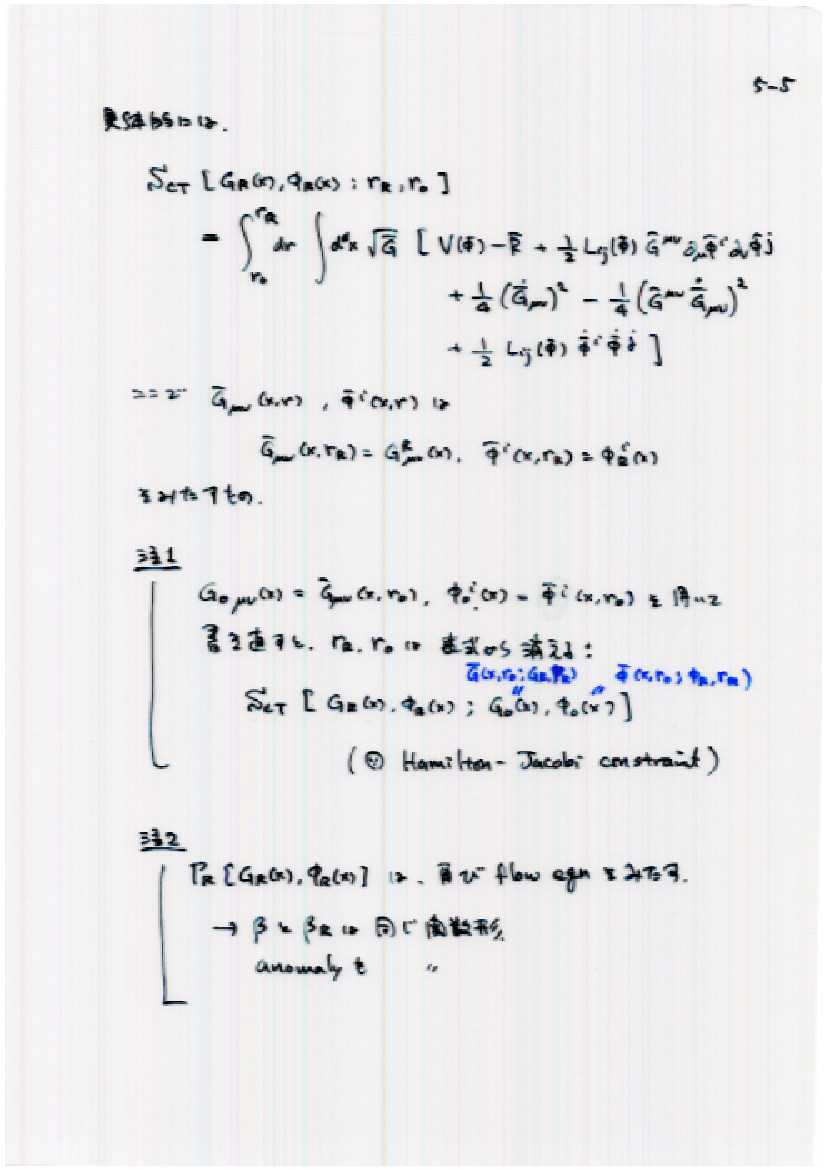 5-5
具体的には.
S_CT [G_R(x), φ_R(x) ; r_R, r_0]
= ∫_{r_0}^{r_R} dr ∫ d^d x √Ḡ [ V(φ̄) - R̄ + 1/2 L_ij(φ̄) Ḡ^{μν} ∂_μ φ̄^i ∂_ν φ̄^j
+ 1/4 (Ḡ̇_{μν})^2 - 1/4 (Ḡ^{μν} Ḡ̇_{μν})^2
+ 1/2 L_ij(φ̄) φ̄̇^i φ̄̇^j ]
ここで Ḡ_{μν}(x,r), φ̄^i(x,r) は
Ḡ_{μν}(x,r_R) = G^R_{μν}(x), φ̄^i(x,r_R) = φ_R^i(x)
をみたすもの.
注1
G_{0 μν}(x) = Ḡ_{μν}(x,r_0), φ_0^i(x) = φ̄^i(x,r_0) を用いて
書き直すと, r_R, r_0 は 表式から 消える :
Ḡ(x,r_0; G_R, r_R) φ̄(x,r_0; φ_R, r_R)
〃 〃
S_CT [ G_R(x), φ_R(x) ; G_0(x), φ_0(x) ]
(∵ Hamilton-Jacobi constraint)
注2
Γ_R [G_R(x), φ_R(x)] は, 再び flow eqn をみたす.
→ β と β_R は 同じ 関数形,
anomaly も 〃